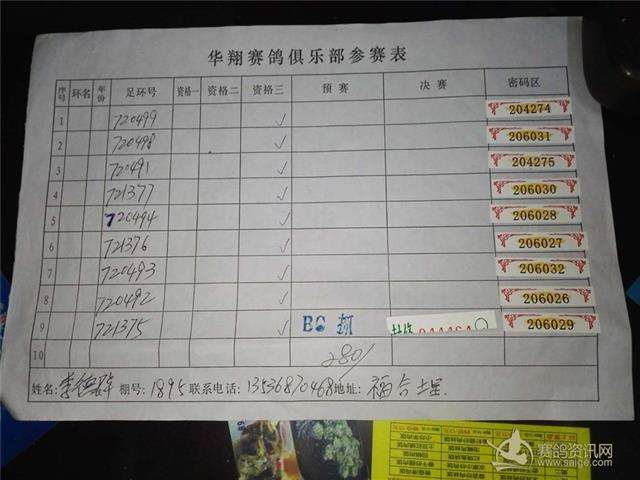 华翔赛鸽俱乐部参赛表
序号 环名 年份 足环号 资格一 资格二 资格三 预赛 决赛 密码区
1 720499 ✓ 204274
2 720498 ✓ 206031
3 720491 ✓ 204275
4 721377 ✓ 206030
5 720494 ✓ 206028
6 721376 ✓ 206027
7 720493 ✓ 206032
8 720492 ✓ 206026
9 721375 ✓ BC 206029
10 280/
姓名: 李德 棚号: 1895 联系电话: 13536870468 地址: 福合
赛鸽资讯网
www.saige.com